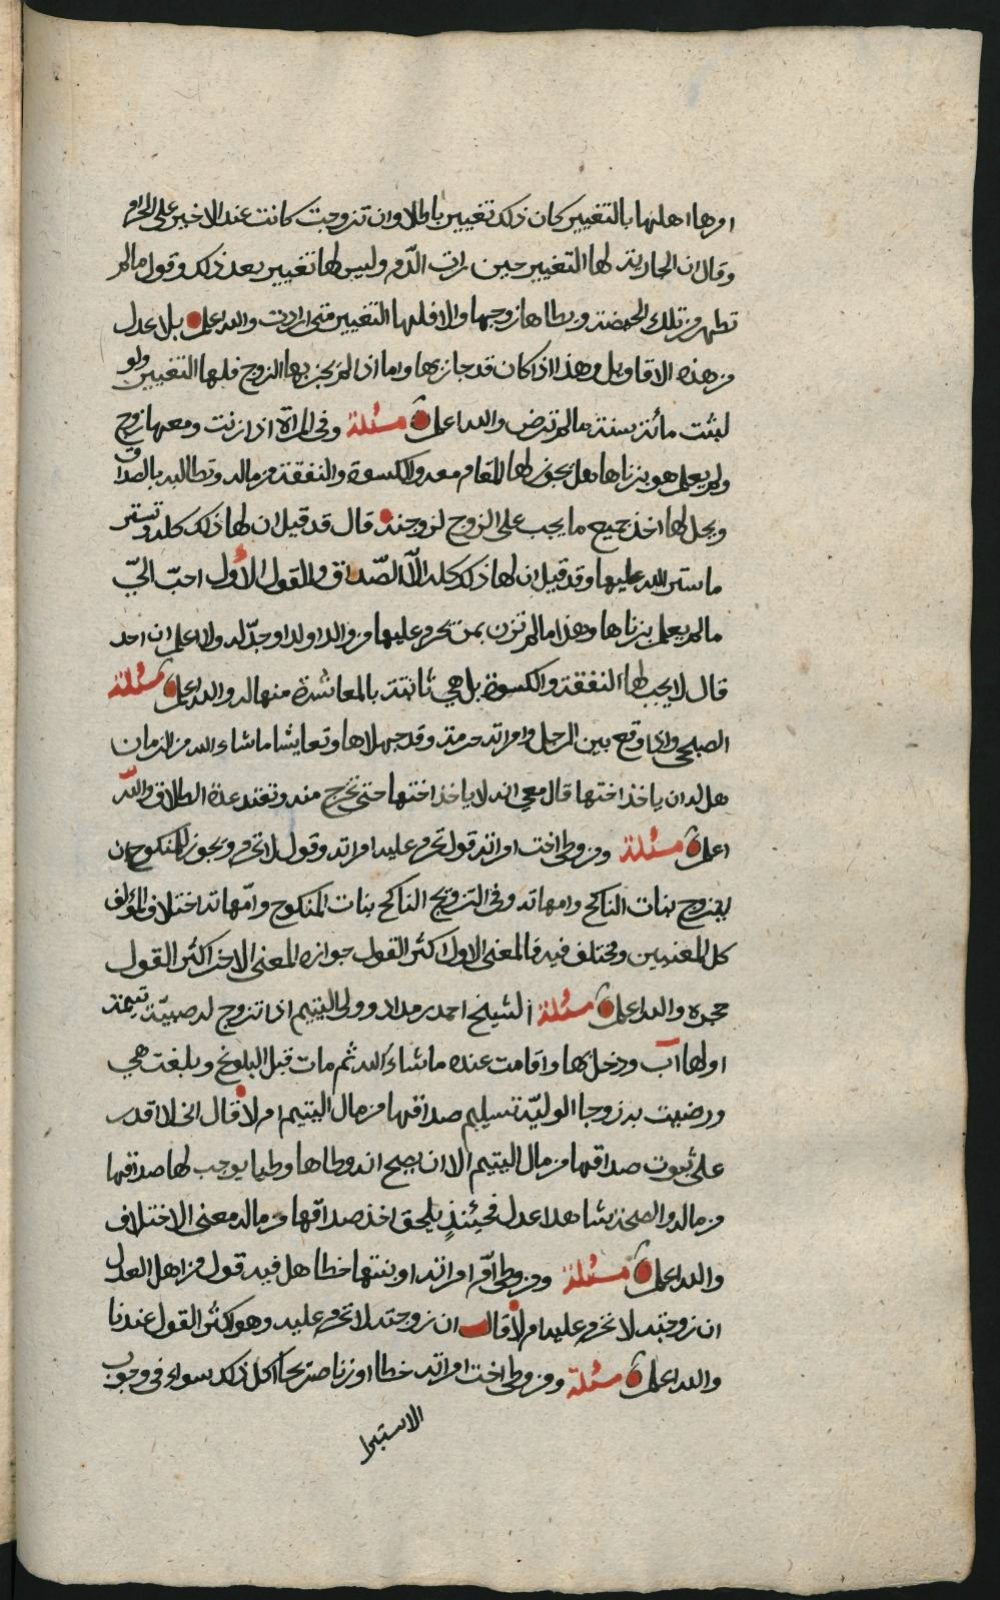 امرها اهلها بالتغيير كان ذلك تغيير باطلا وان تزوجت كانت عند الاخير على الحرام
وقال ان الجارية لها التغيير حين رات الدّم وليس لها تغيير بعد ذلك وقول مالم
تطهر من تلك الحيضة ويطاها زوجها والا فلها التغيير متى ارادت والله اعلم بلا عدل
من هذه الاقاويل وهذا اذا كان قد جاز بها واما اذا لم يجز بها الزوج فلها التغيير ولو
لبثت مائة سنة مالم ترض والله اعلم مسئلة وفي المراة اذا زنت ومعها زوج
ولم يعلم هو بزناها هل يجوز لها المقام معه والكسوة والنفقة من ماله وتطالبه بالصداق
ويحل لها اخذ جميع ما يجب على الزوج لزوجته قال قد قيل ان لها ذلك كله وتستر
ما ستر الله عليها وقد قيل ان لها ذلك كله الّا الصّداق والقول الأول احبّ اليّ
مالم يعلم بزناها وهذا مالم تزن بمن تحرم عليها من والد او ولد او جدّ له ولا اعلم ان احد
قال لا يجب لها النفقة والكسوة بل هي ثابتة بالمعاشرة منها له والله اعلم مسئلة
الصبحي واذا وقع بين الرجل وامراته حرمة وقد جهلاها وتعايشا ما شاء الله من الزمان
هل له ان ياخذ اختها قال معي انه لا ياخذ اختها حتى تخرج منه وتعتد عدة الطلاق والله
اعلم مسئلة ومن وطئ اخت امراته قول تحرم عليه امراته وقول لا تحرم ويجوز للمنكوح ان
يتزوج بنات الناكح وامهاته وفي التزويج الناكح بنات المنكوح وامّهاته اختلاف المؤلف
كل المعنيين ومختلف فيه فالمعنى الاول اكثر القول جوازه المعنى الاخر اكثر القول
حجره والله اعلم مسئلة الشيخ احمد بن مداد وولي اليتيم اذا تزوج له صبيّة يتيمة
او لها آب ودخل بها واقامت عنده ما شاء الله ثم مات قبل البلوغ وبلغت هي
ورضيت به زوجا الوليّه تسليم صداقها من مال اليتيم ام لا قال اني لا اقدر
على ثبوت صداقها من مال اليتيم الا ان يصح انه وطاها وطيا يوجب لها صداقها
من ماله والصحة شاهدا عدل فحينئذٍ يلحق اخذ صداقها من ماله معنى الاختلاف
والله اعلم مسئلة ومن وطئ امّ امراته او بنتها خطا هل فيه قول من اهل العدل
ان زوجته لا تحرم عليه ام لا قال ان زوجته لا تحرم عليه وهو اكثر القول عندنا
والله اعلم مسئلة ومن وطئ اخت امراته خطا او زنا صريحا اكل ذلك سواء في وجوب
الاستبرا